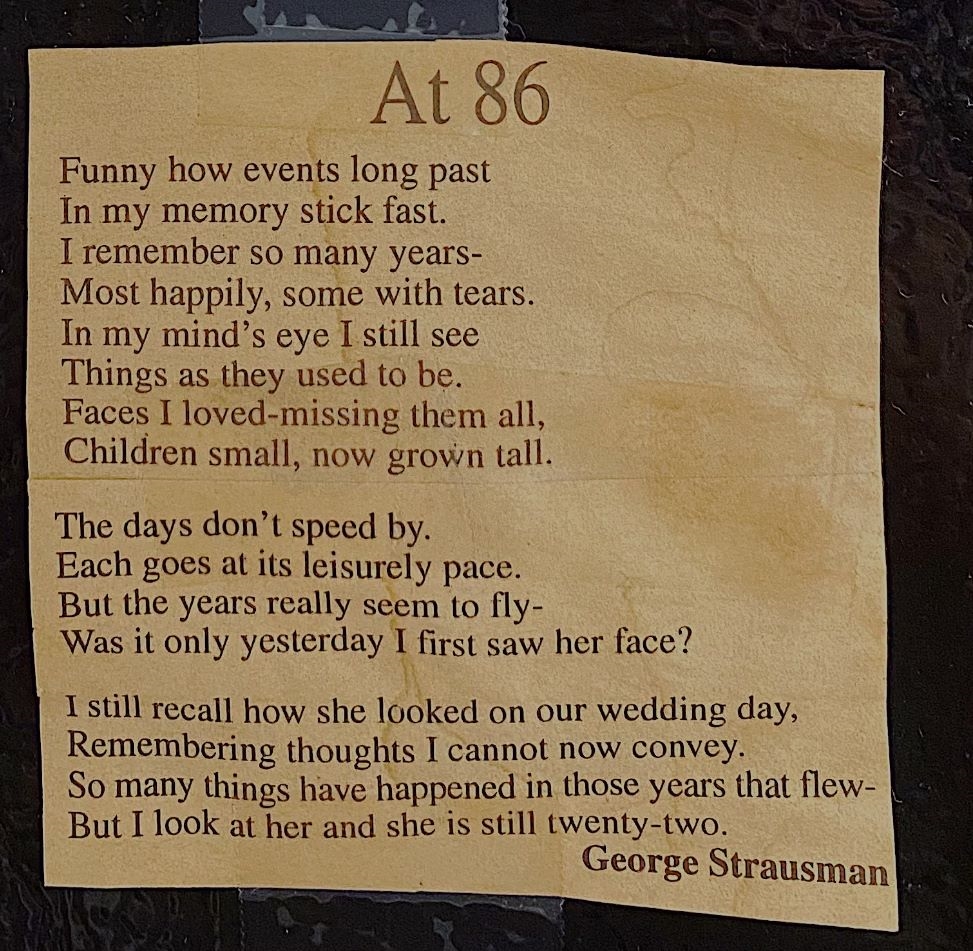 At 86
Funny how events long past
In my memory stick fast.
I remember so many years-
Most happily, some with tears.
In my mind’s eye I still see
Things as they used to be.
Faces I loved-missing them all,
Children small, now grown tall.
The days don’t speed by.
Each goes at its leisurely pace.
But the years really seem to fly-
Was it only yesterday I first saw her face?
I still recall how she looked on our wedding day,
Remembering thoughts I cannot now convey.
So many things have happened in those years that flew-
But I look at her and she is still twenty-two.
George Strausman